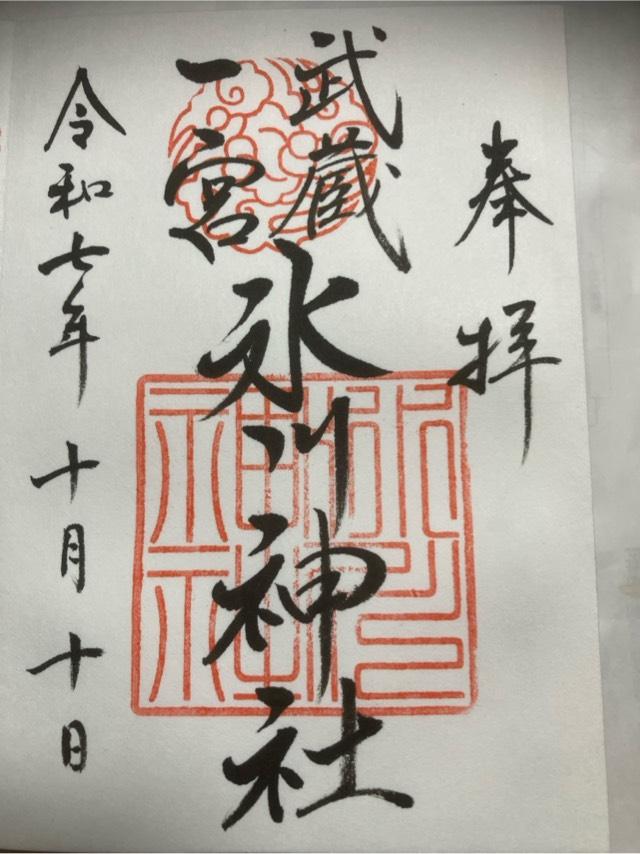 奉拝
武蔵
一宮
氷川神社
令和七年 十月 十日
氷川神社